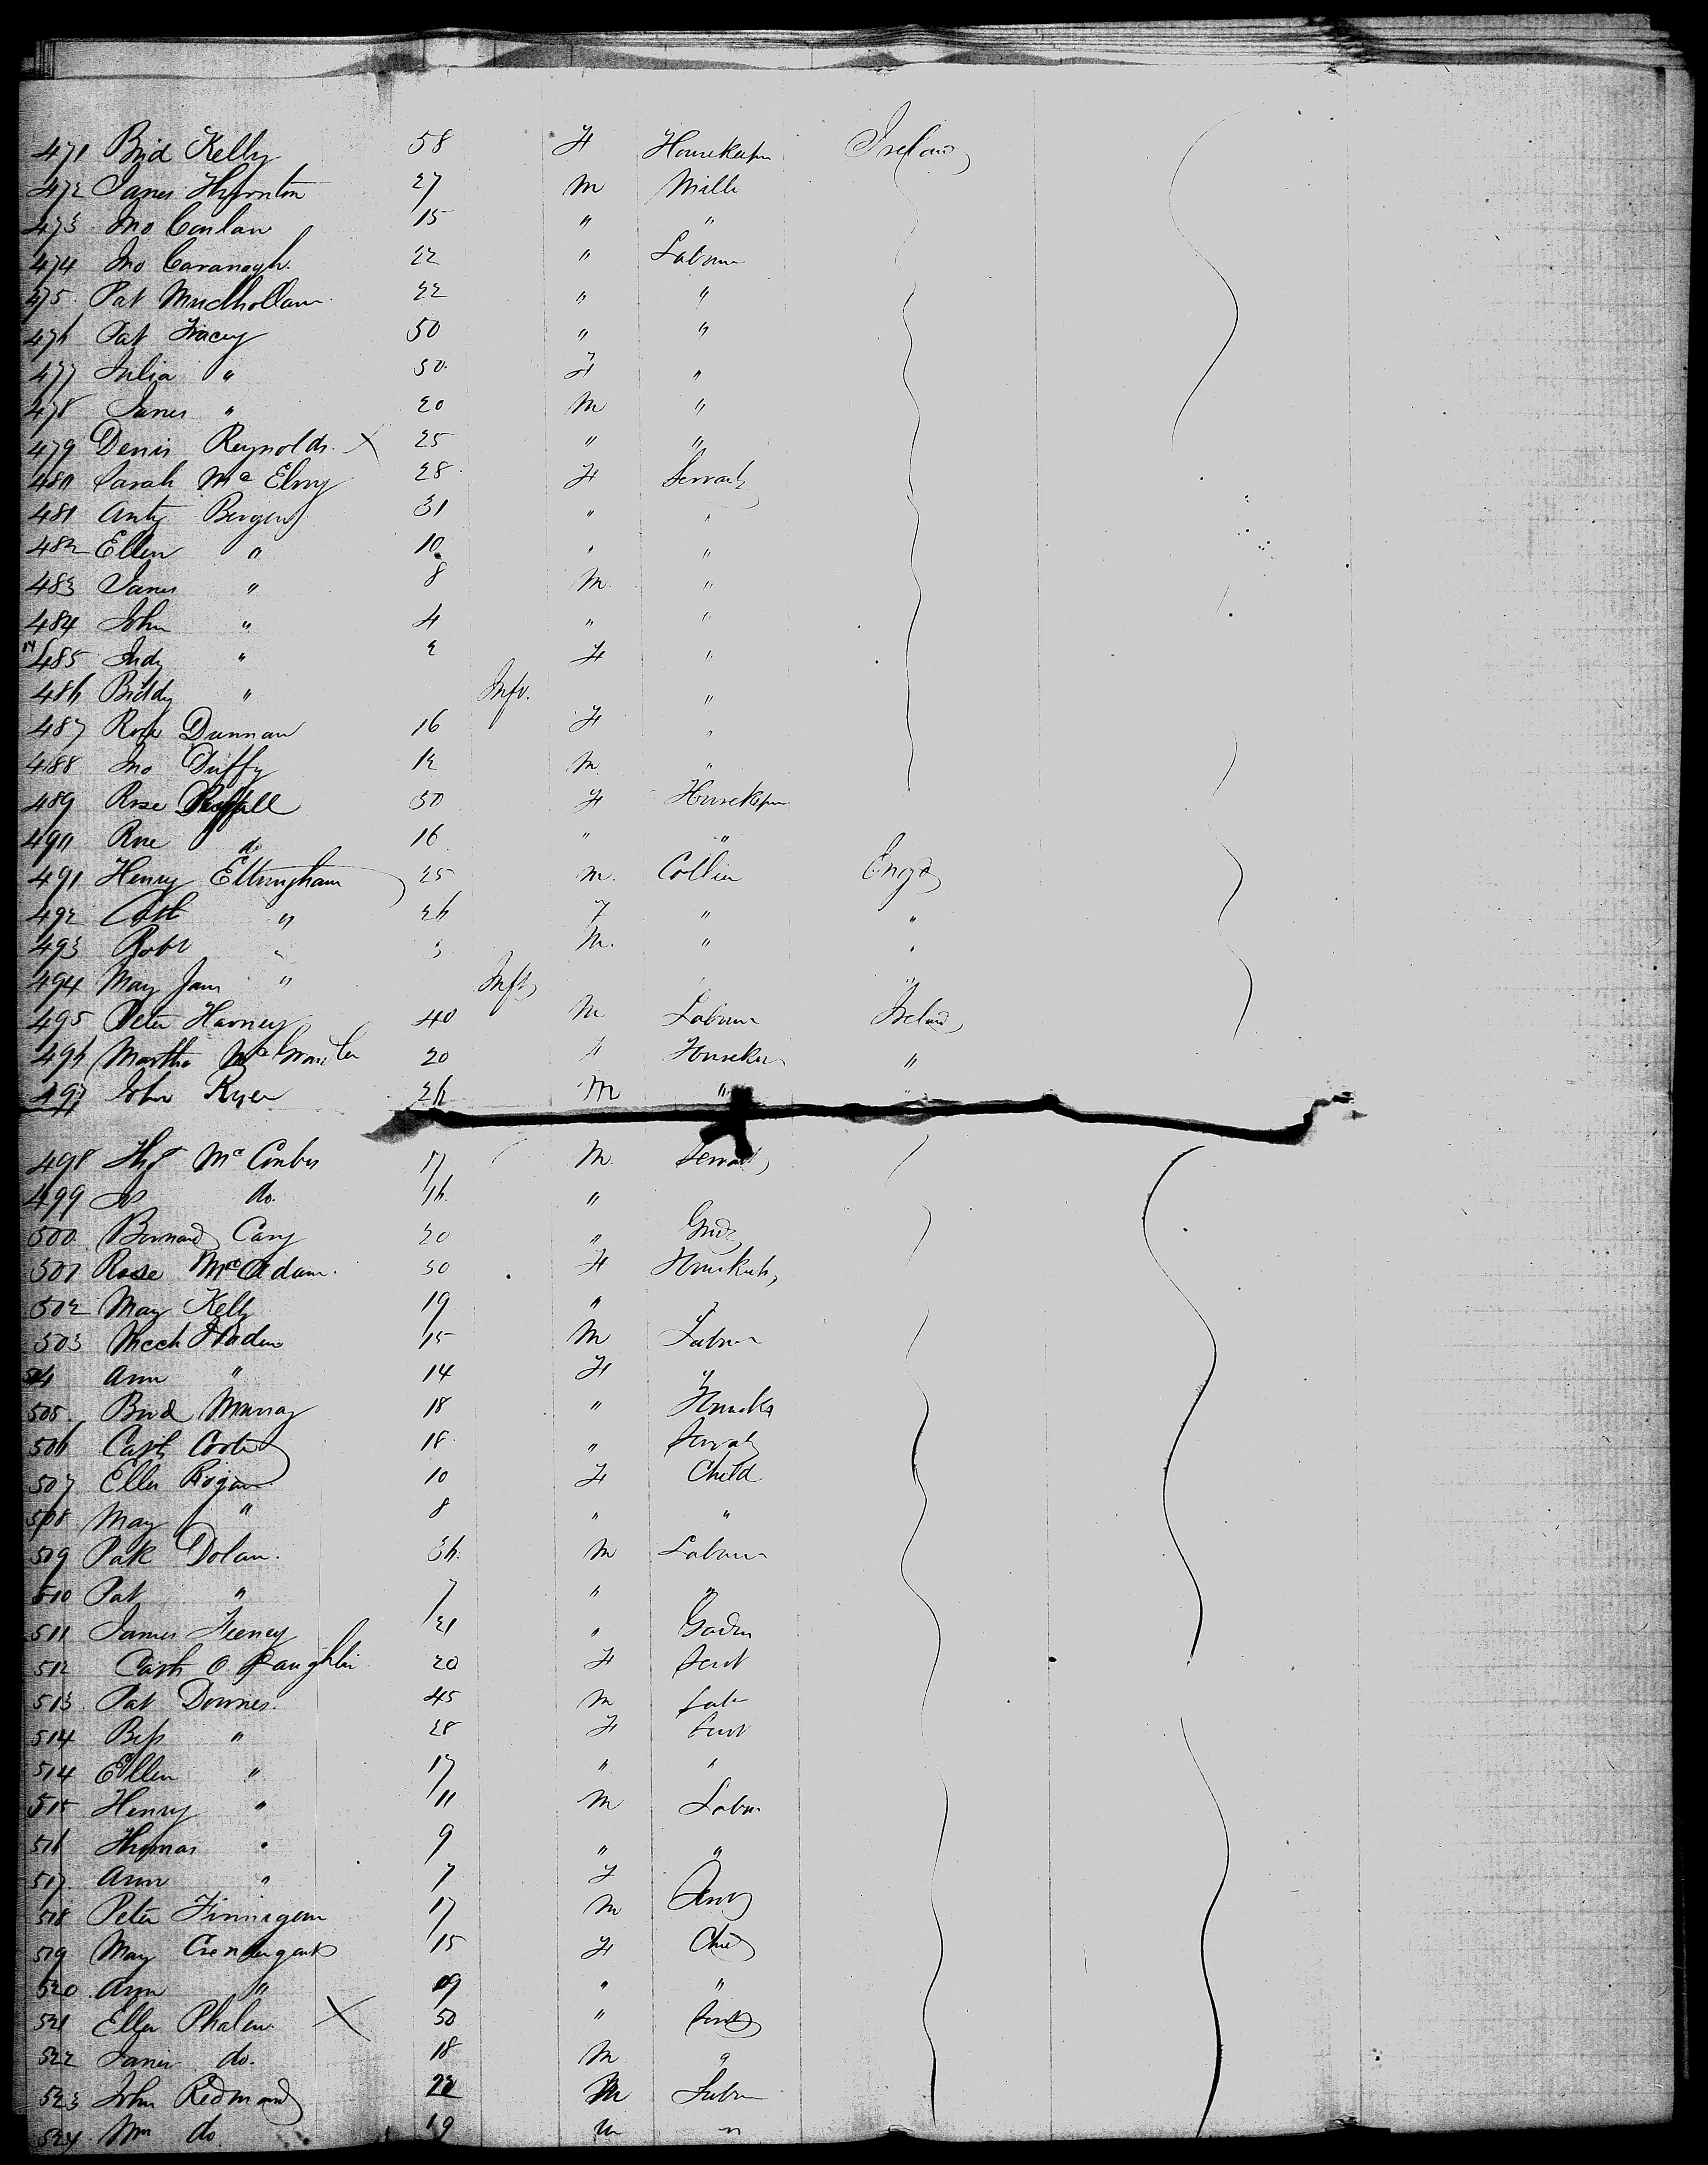 471 Brid Kelly 58 F Housekeper Ireland
472 James Thornton 27 M Mille
473 Jno Conlan 15 " "
474 Jno Cavanagh. 22 " Labour
475. Pat Mucllhollan 22 " "
476 Pat Tracey 50 " "
477 Julia " 50. F "
478 James " 20 M "
479 Denis Reynolds. X 25 " "
480 Sarah Mc Elroy 28 F Servant
481 Anty Bergen 31 " "
482 Ellen " 10 " "
483 James " 8 M "
484 John " 4 " "
485 Judy " 2 F "
486 Biddy " Inft. "
487 Rose Dunnan 16 F "
488 Jno Duffy 12 M. "
489 Rose 50 F Housekeper
490 Rose do 16 " "
491 Henry Eltringham 25 M. Collier Engd
492 Cath " 26 F " "
493 Robt " 3 M. " "
494 Mary Jane " Inft " "
495 Peter Harvey 40 M Labour Ireland
496 Martha 20 F Housekr "
497 John Ryer 26 M "
498 Hy Mc Combes 17 M. Servant
499 Js do. 16 "
500 Bernard Cary 20 "
501 Rose McAdam. 50 F Housekeep
502 Mary Kelly 19 " "
503 Mich 15 M Labour
504 Ann " 14 F "
505 Brid Murray 18 " Houseke
506 Cath 18 " Servant
507 Ellen Rogan 10 F Child
508 Mary " 8 " "
509 Patk Dolan. 36. M Labour
510 Pat " 7 " "
511 James Feeney 21 "
512 Cath O Laughlin 20 F Sert
513. Pat Downes. 45 M Lab
514 Bess " 28 F Sert
514 Ellen " 17 " "
515 Henry " 11 M Labr
516 Thomas " 9 " "
517. Ann " 7 F
518 Peter Finnigan 17 M Sert
519 Mary 15 F Child
520 Ann " 9 " "
521 Ellen Phalen. X 50 " Sert
522 James do. 18 M "
523 John Redmond 22 M Labr
524 Wm do 19 M "